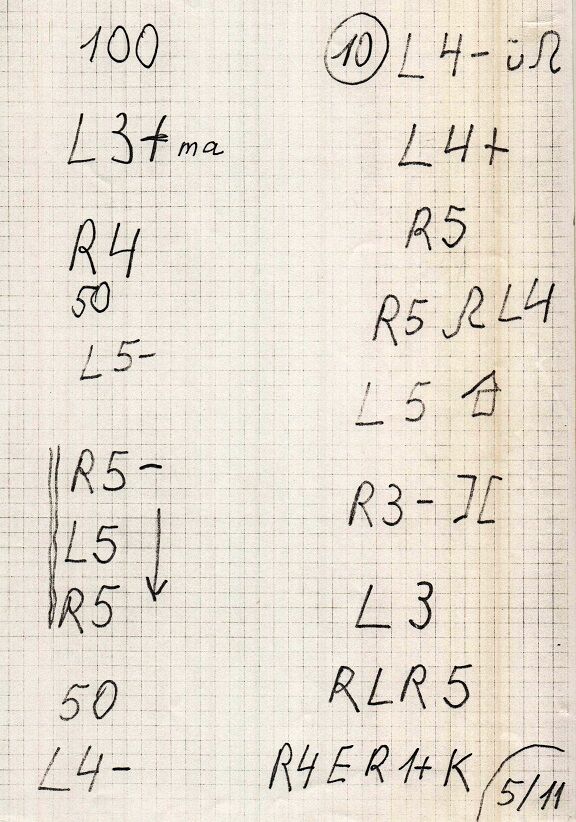 100
L3+ ma
R4
50
L5-
R5-
L5
R5
50
L4-
10 L4- üΩ
L4+
R5
R5 Ω L4
L5
R3-
L3
RLR5
R4 E R1+ K
5/11